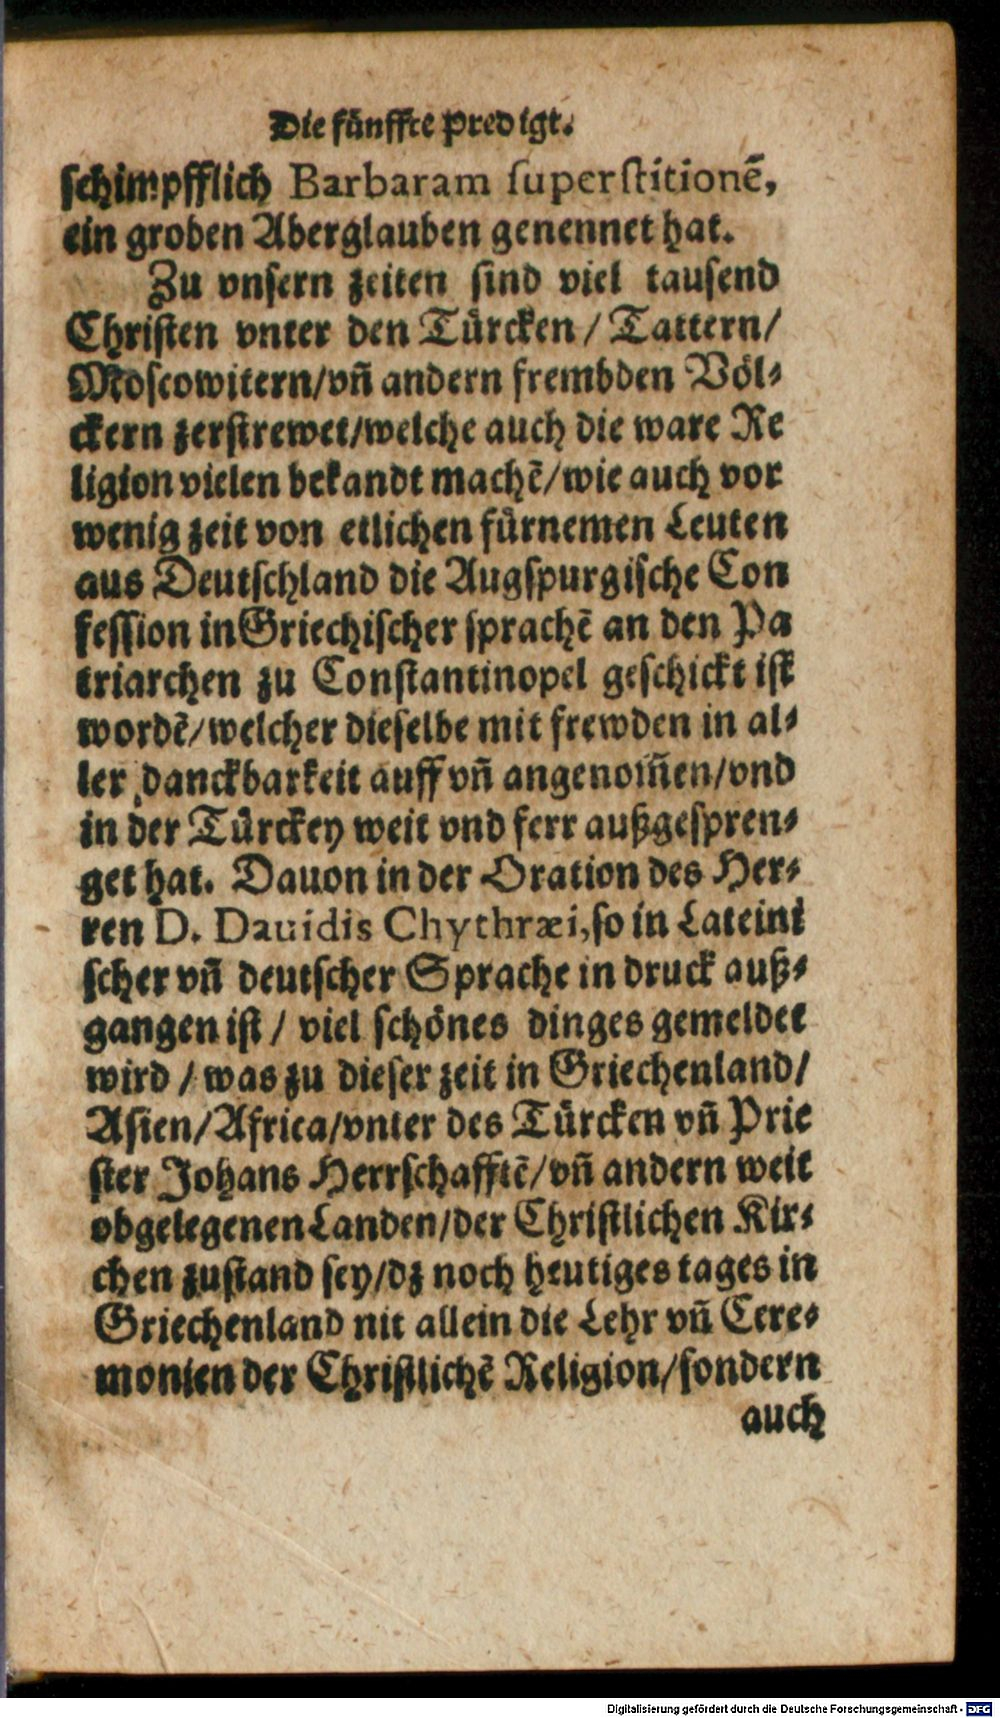 Die fünffte Predigt.
schimpfflich Barbaram ſuperſtitionẽ,
ein groben Aberglauben genennet hat.
Zu vnsern zeiten sind viel tausend
Christen vnter den Türcken / Tattern/
Moscowitern/vñ andern frembden Völ⸗
ckern zerstrewet/welche auch die ware Re
ligion vielen bekandt machẽ/wie auch vor
wenig zeit von etlichen fürnemen Leuten
aus Deutschland die Augspurgische Con
fession in Griechischer sprachẽ an den Pa
triarchen zu Constantinopel geschickt ist
wordẽ/welcher dieselbe mit frewden in al⸗
ler danckbarkeit auff vñ angenom̃en/vnd
in der Türckey weit vnd ferr außgespren⸗
get hat. Dauon in der Oration des Her⸗
ren D. Dauidis Chythræi, so in Lateini
scher vñ deutscher Sprache in druck auß⸗
gangen ist / viel schönes dinges gemeldet
wird / was zu dieser zeit in Griechenland/
Asien/Africa/vnter des Türcken vñ Prie
ster Johans Herrschafftẽ/vñ andern weit
obgelegenen Landen/der Christlichen Kir⸗
chen zustand sey/dz noch heutiges tages in
Griechenland nit allein die Lehr vñ Cere⸗
monien der Christlichẽ Religion/sondern
auch
Digitalisierung gefördert durch die Deutsche Forschungsgemeinschaft - DFG